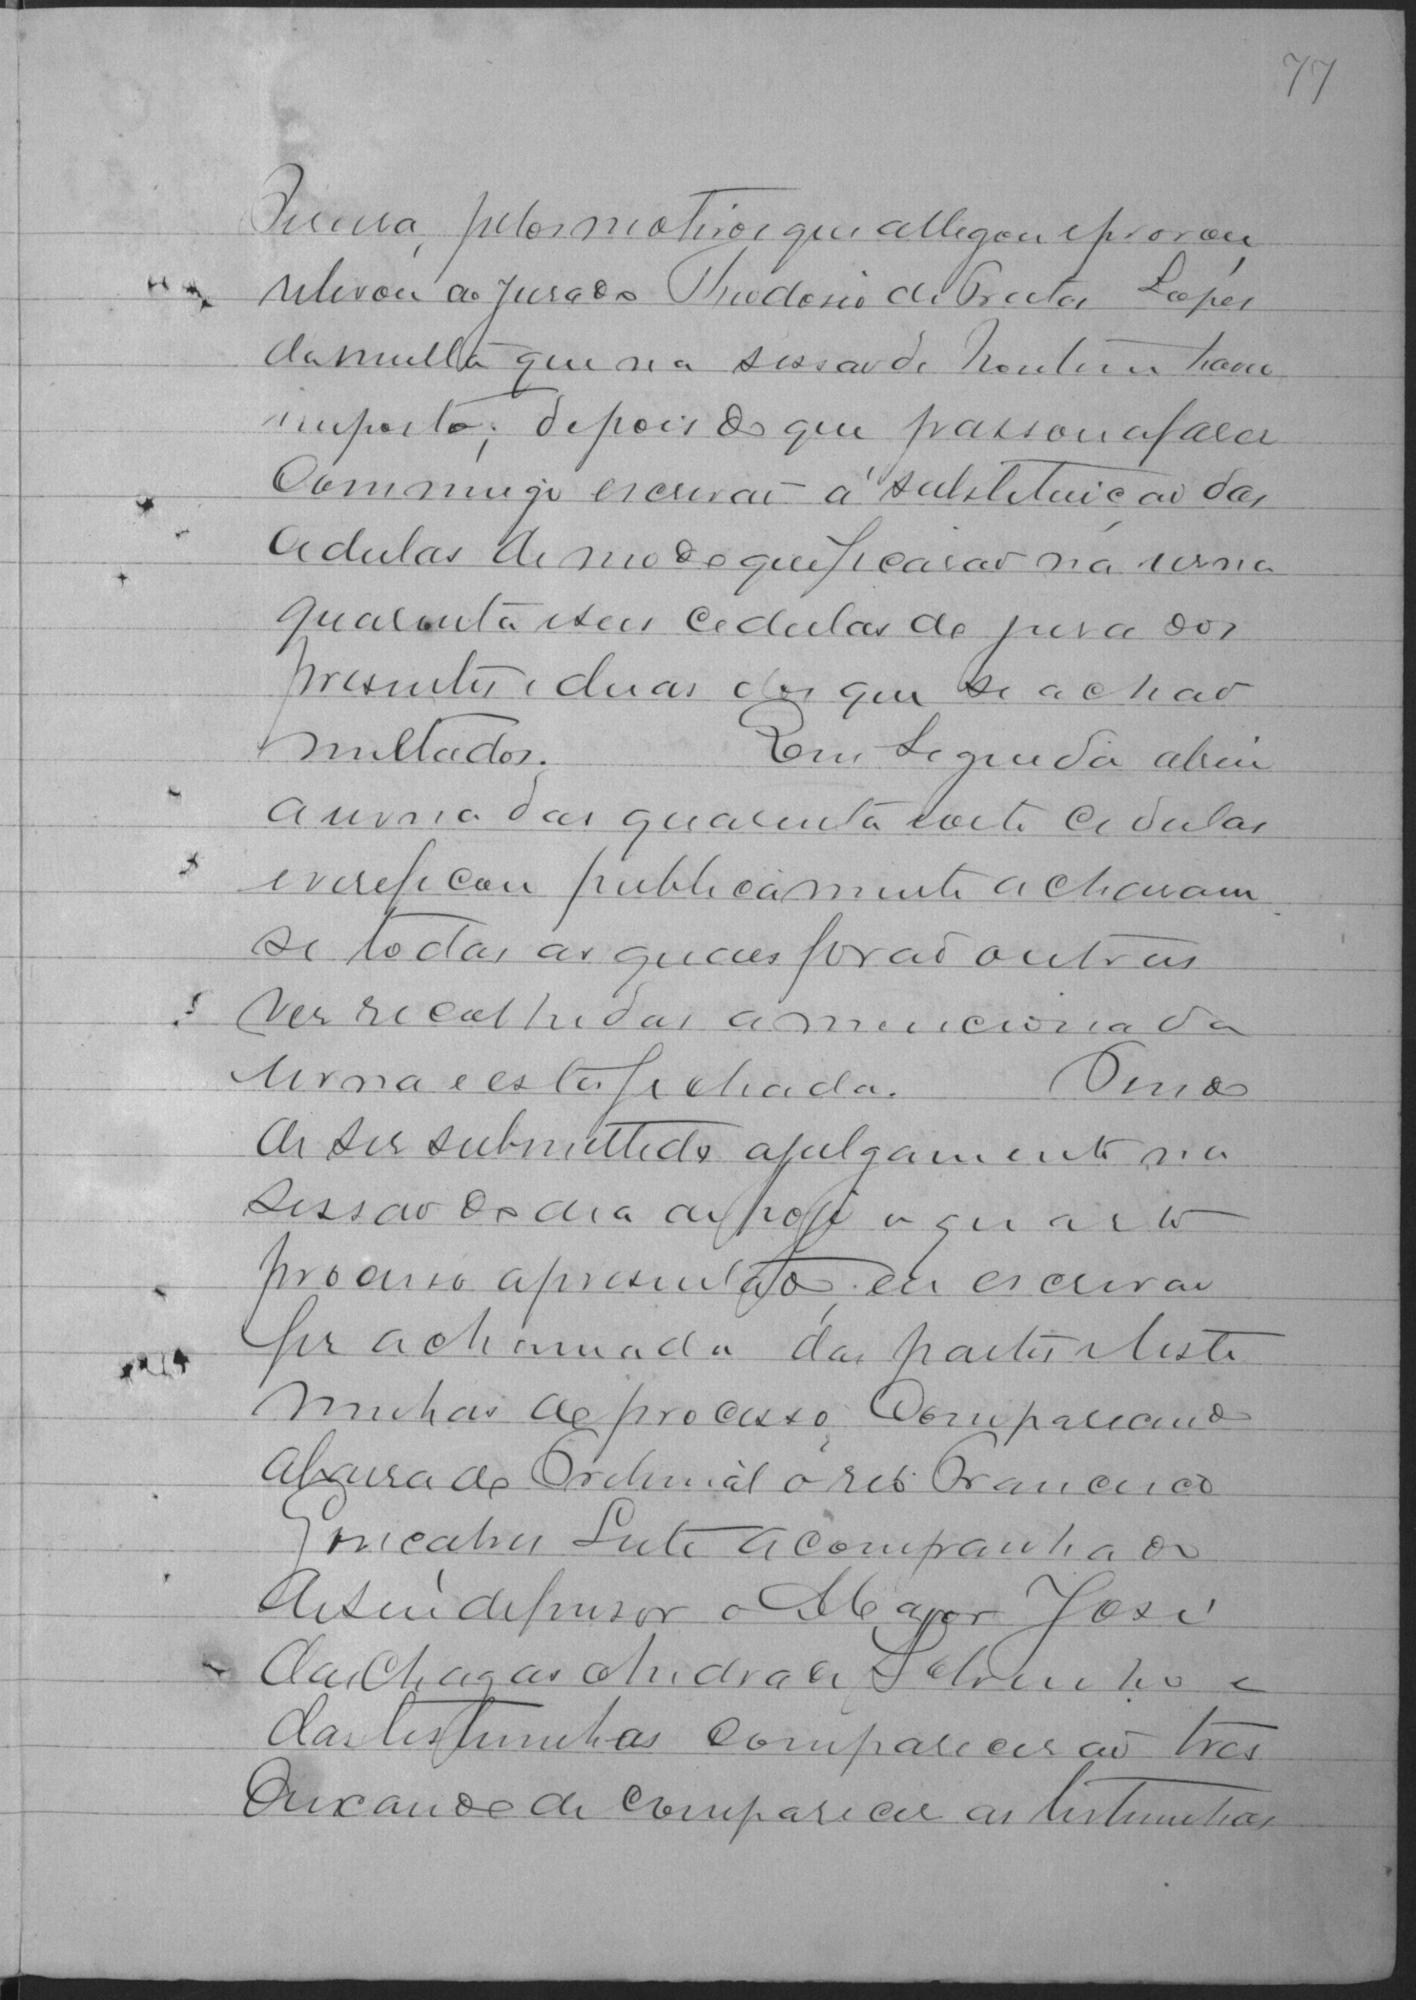 77
pelos motivos que allegou e provou
relevou ao jurado Theodosio de Freitas Lopes
da multa que na sessão de hontem havia
imposto; depois do que passou a fazer
commigo escrivão a substituição das
cedulas de modo que ficarão na urna
quarenta e seis cedulas de jurados
presentes e duas dos que se achão
multados. Em seguida abriu
a urna das quarenta e oito cedulas
e verificou publicamente acharam
se todas as quaes forão outras
ves recolhidas a mencionada
urna e esta fechada. Tendo
de ser submettido a julgamento na
sessão do dia de hoje o quarto
processo apresentado, eu escrivão
fis a chamada das partes e teste
munhas do processo, Comparecendo
a barra do Tribunal o réo Francisco
Gonçalves Leite acompanhado
de seu defensor o Major José
das Chagas Andrade Sobrinho e
das testemunhas comparecerão tres
Deixando de comparecer as testemunhas